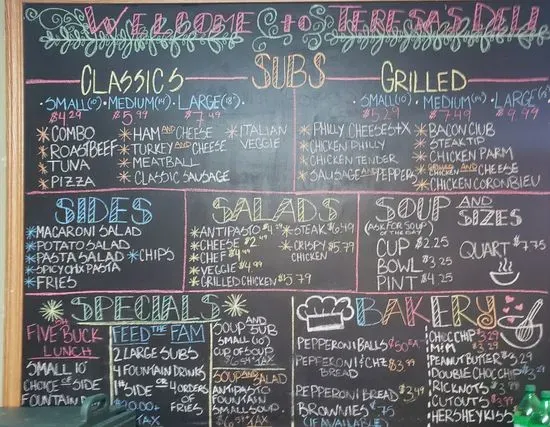 WELCOME TO TERESA'S DELI
SUBS
CLASSICS
SMALL(10") • MEDIUM(14") • LARGE(18")
$4.29 $5.99 $7.49
*COMBO
*ROAST BEEF
*TUNA
*PIZZA
*HAM AND CHEESE
*TURKEY AND CHEESE
*MEATBALL
*CLASSIC SAUSAGE
*ITALIAN
VEGGIE
GRILLED
SMALL(10") • MEDIUM(14") • LARGE(18")
$5.29 $7.49 $9.99
*PHILLY CHEESE STX
*CHICKEN PHILLY
*CHICKEN TENDER
*SAUSAGE AND PEPPER
*BACON CLUB
*STEAK TIP
*CHICKEN PARM
*GRILLED CHICKEN AND CHEESE
*CHICKEN CORONBIEU
SIDES
*MACARONI SALAD
*POTATO SALAD
*PASTA SALAD *CHIPS
*SPICY CHIX PASTA
*FRIES
SALADS
*ANTIPASTO
*CHEESE $2.49
*CHEF $4.99
*VEGGIE $4.99
*GRILLED CHICKEN $5.79
*STEAK $6.49
*CRISPY $5.79
CHICKEN
SOUP AND SIZES
(ASK FOR SOUP
OF THE DAY)
CUP $2.25
BOWL $3.25
PINT $4.25
QUART $7.75
*SPECIALS*
FIVE BUCK
LUNCH
SMALL 10"
CHOICE OF SIDE
FOUNTAIN
FEED THE FAM
2 LARGE SUBS
4 FOUNTAIN DRINKS
1 SIDE OR 4 ORDERS
OF FRIES
TAX
SOUP AND SUB
SMALL (10")
CUP OF SOUP
SOUP AND SALAD
ANTIPASTO
FOUNTAIN
SMALL SOUP
TAX
BAKERY
PEPPERONI BALLS $.50 EA
PEPPERONI & CHZ $3.99
BREAD
PEPPERONI BREAD $3.49
BROWNIES $.75
(IF AVAILABLE)
CHOC CHIP $3.29
M&M $3.29
PEANUT BUTTER $3.29
DOUBLE CHOC CHIP
RICKNOTS
CUTOUTS $3.99
HERSHEY KISS